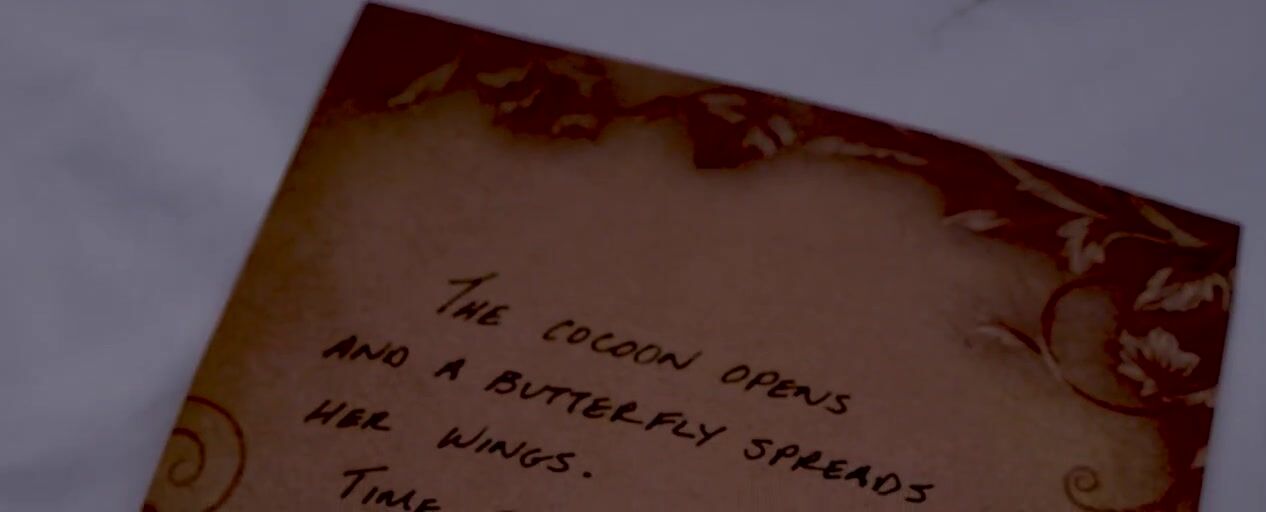 THE COCOON OPENS
AND A BUTTERFLY SPREADS
HER WINGS.
TIME